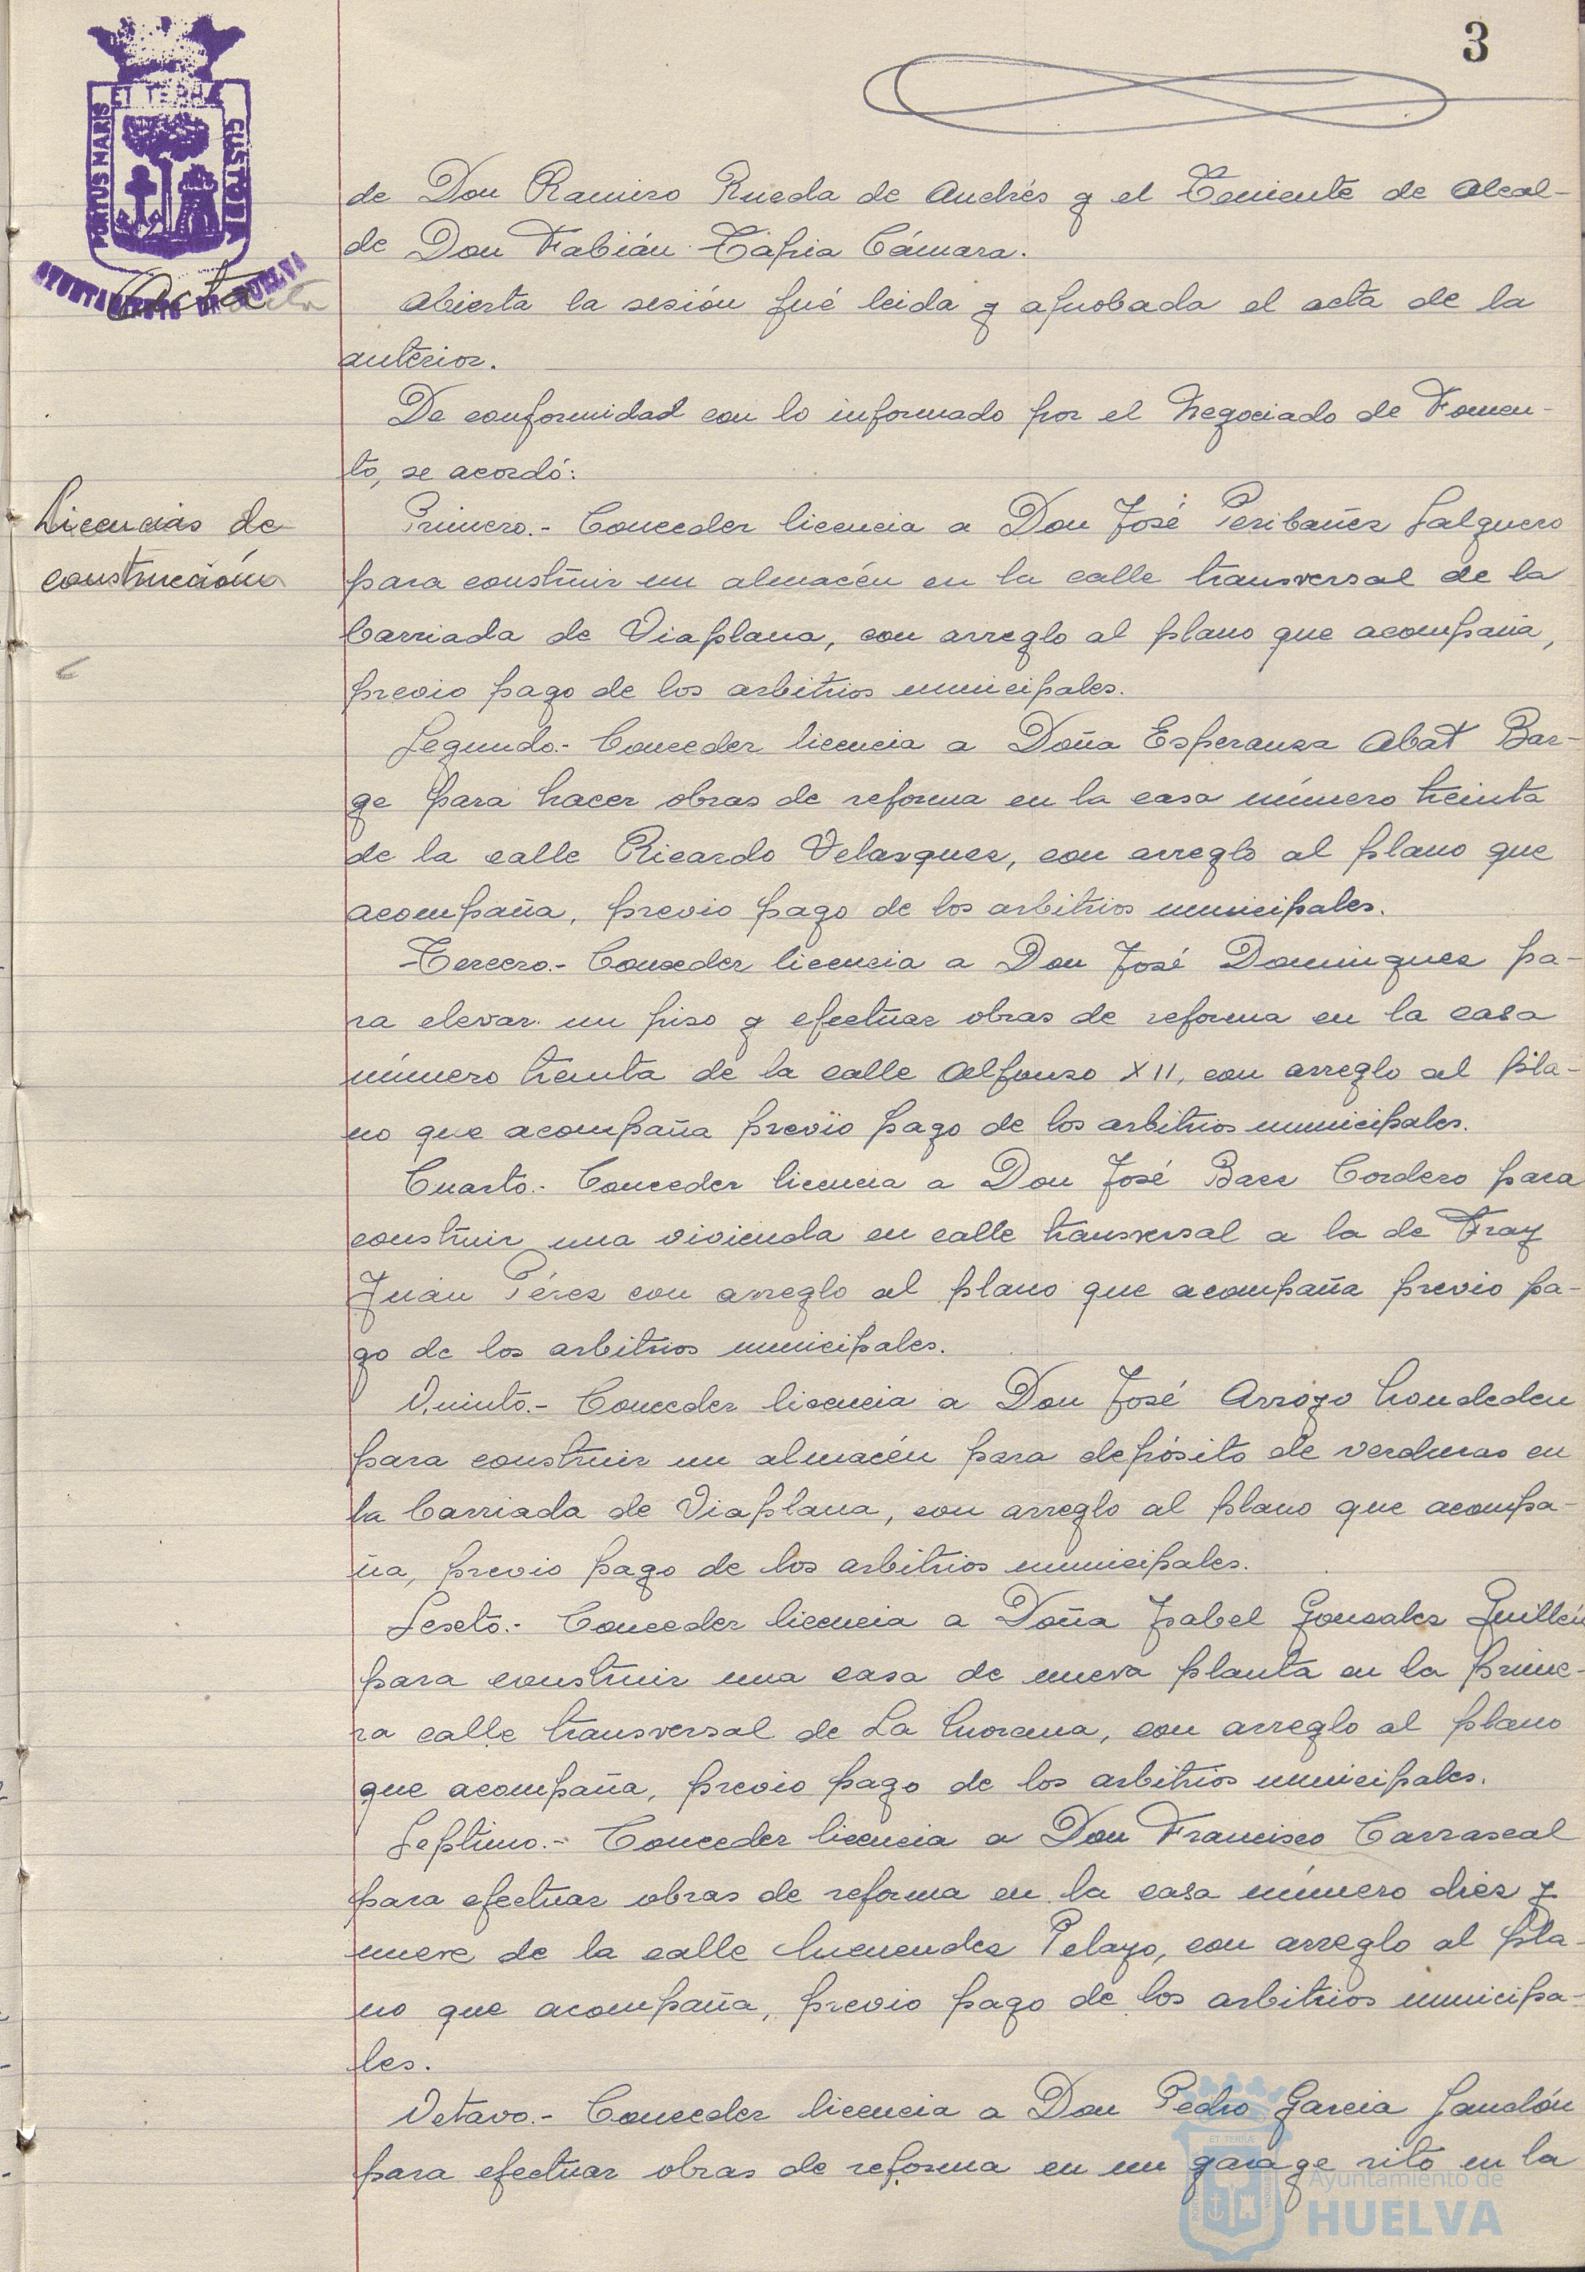 3
ET TERRÆ
PORTUS MARIS
CUSTODIA
AYUNTAMIENTO DE HUELVA
Acta
de Don Ramiro Rueda de Andrés y el Teniente de Alcal-
de Don Fabián Tapia Cámara.
Abierta la sesión fué leida y aprobada el acta de la
anterior.
De conformidad con lo informado por el Negociado de Fomen-
to, se acordó:
Licencias de
construcción
Primero.- Conceder licencia a Don José Peribañez Salguero
para construir un almacén en la calle transversal de la
barriada de Viaplana, con arreglo al plano que acompaña,
previo pago de los arbitrios municipales.
Segundo.- Conceder licencia a Doña Esperanza Abat Bar-
ge para hacer obras de reforma en la casa número treinta
de la calle Ricardo Velazquez, con arreglo al plano que
acompaña, previo pago de los arbitrios municipales.
Tercero.- Conceder licencia a Don José Dominguez pa-
ra elevar un piso y efectuar obras de reforma en la casa
número treinta de la calle Alfonso XII, con arreglo al pla-
no que acompaña previo pago de los arbitrios municipales.
Cuarto.- Conceder licencia a Don José Baez Cordero para
construir una vivienda en calle transversal a la de Fray
Juan Pérez con arreglo al plano que acompaña previo pa-
go de los arbitrios municipales.
Quinto.- Conceder licencia a Don José Arroyo
para construir un almacén para depósito de verduras en
la barriada de Viaplana, con arreglo al plano que acompa-
ña, previo pago de los arbitrios municipales.
Sexto.- Conceder licencia a Doña Isabel Gonzalez Guillén
para construir una casa de nueva planta en la prime-
ra calle transversal de La Morana, con arreglo al plano
que acompaña, previo pago de los arbitrios municipales.
Septimo.- Conceder licencia a Don Francisco Carrascal
para efectuar obras de reforma en la casa número diez y
nueve de la calle Menendez Pelayo, con arreglo al pla-
no que acompaña, previo pago de los arbitrios municipa-
les.
Octavo.- Conceder licencia a Don Pedro Garcia Jandón
para efectuar obras de reforma en un garage sito en la
Ayuntamiento de
HUELVA